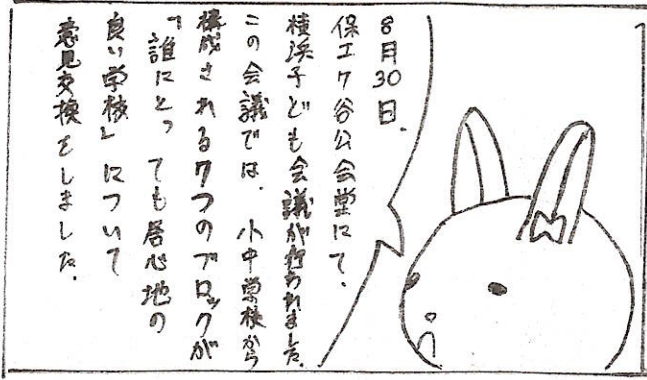 8月30日、
保土ケ谷公会堂にて、
横浜子ども会議が行われました。
この会議では、小中学校から
構成される7つのブロックが
「誰にとっても居心地の
良い学校」について
意見交換をしました。